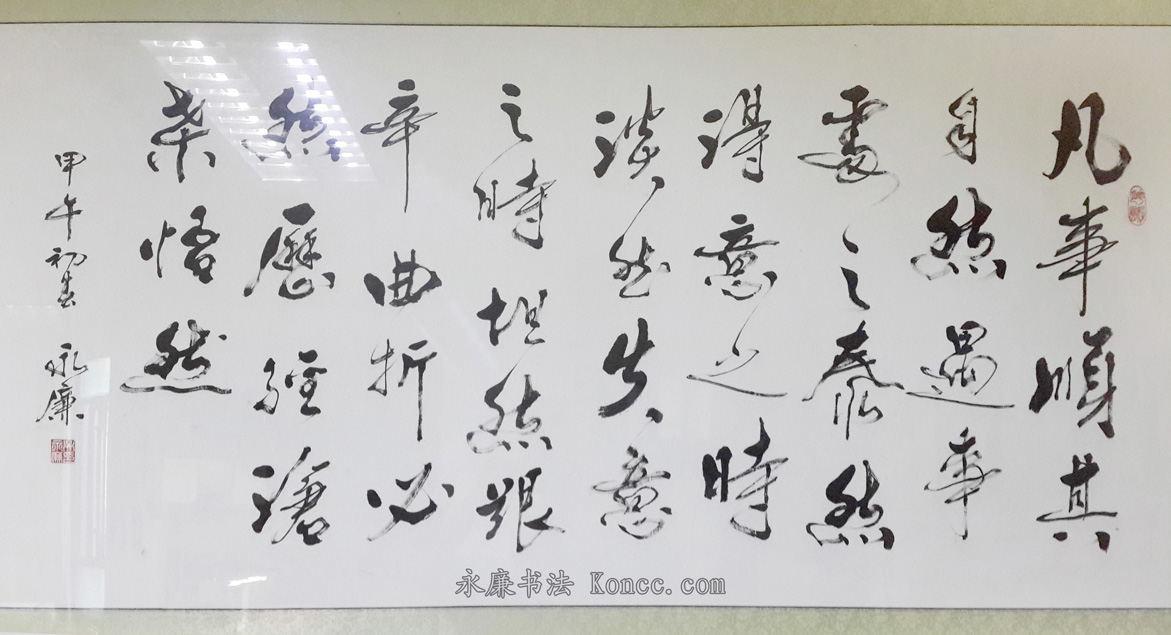 凡事順其
自然遇事
處之泰然
得意之時
淡然失意
之時坦然艱
辛曲折必
然歷經滄
桑悟然
甲午初春 永廉
永廉书法 Koncc.com